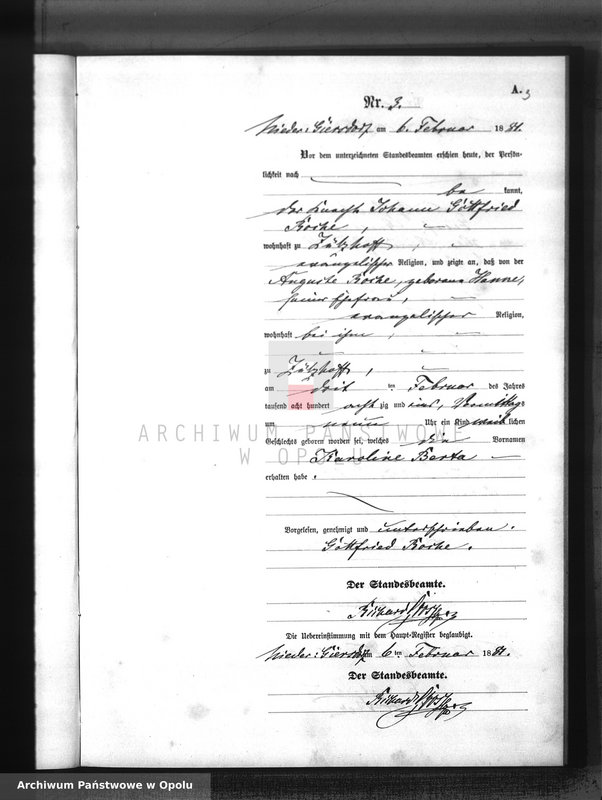 A. 3
Nr. 3.
Nieder-Giersdorf am 6. Februar 1881.
Vor dem unterzeichneten Standesbeamten erschien heute, der Persön-
lichkeit nach
be kannt,
der Knecht Johann Gottfried
,
wohnhaft zu
evangelischer Religion, und zeigte an, daß von der
Auguste geborene Hanne,
seiner Ehefrau,
evangelischer Religion,
wohnhaft bei ihm
zu ,
am drit ten Februar des Jahres
tausend acht hundert acht zig und eins, Vormittags
um neun Uhr ein Kind weib lichen
Geschlechts geboren worden sei, welches die Vornamen
Karoline Berta
erhalten habe.
Vorgelesen, genehmigt und unterschrieben.
Gottfried
Der Standesbeamte.
Richard
Die Uebereinstimmung mit dem Haupt-Register beglaubigt.
Nieder-Giersdorf am 6ten Februar 1881.
Der Standesbeamte.
Richard
ARCHIWUM PAŃSTWOWE
W OPOLU
Archiwum Państwowe w Opolu